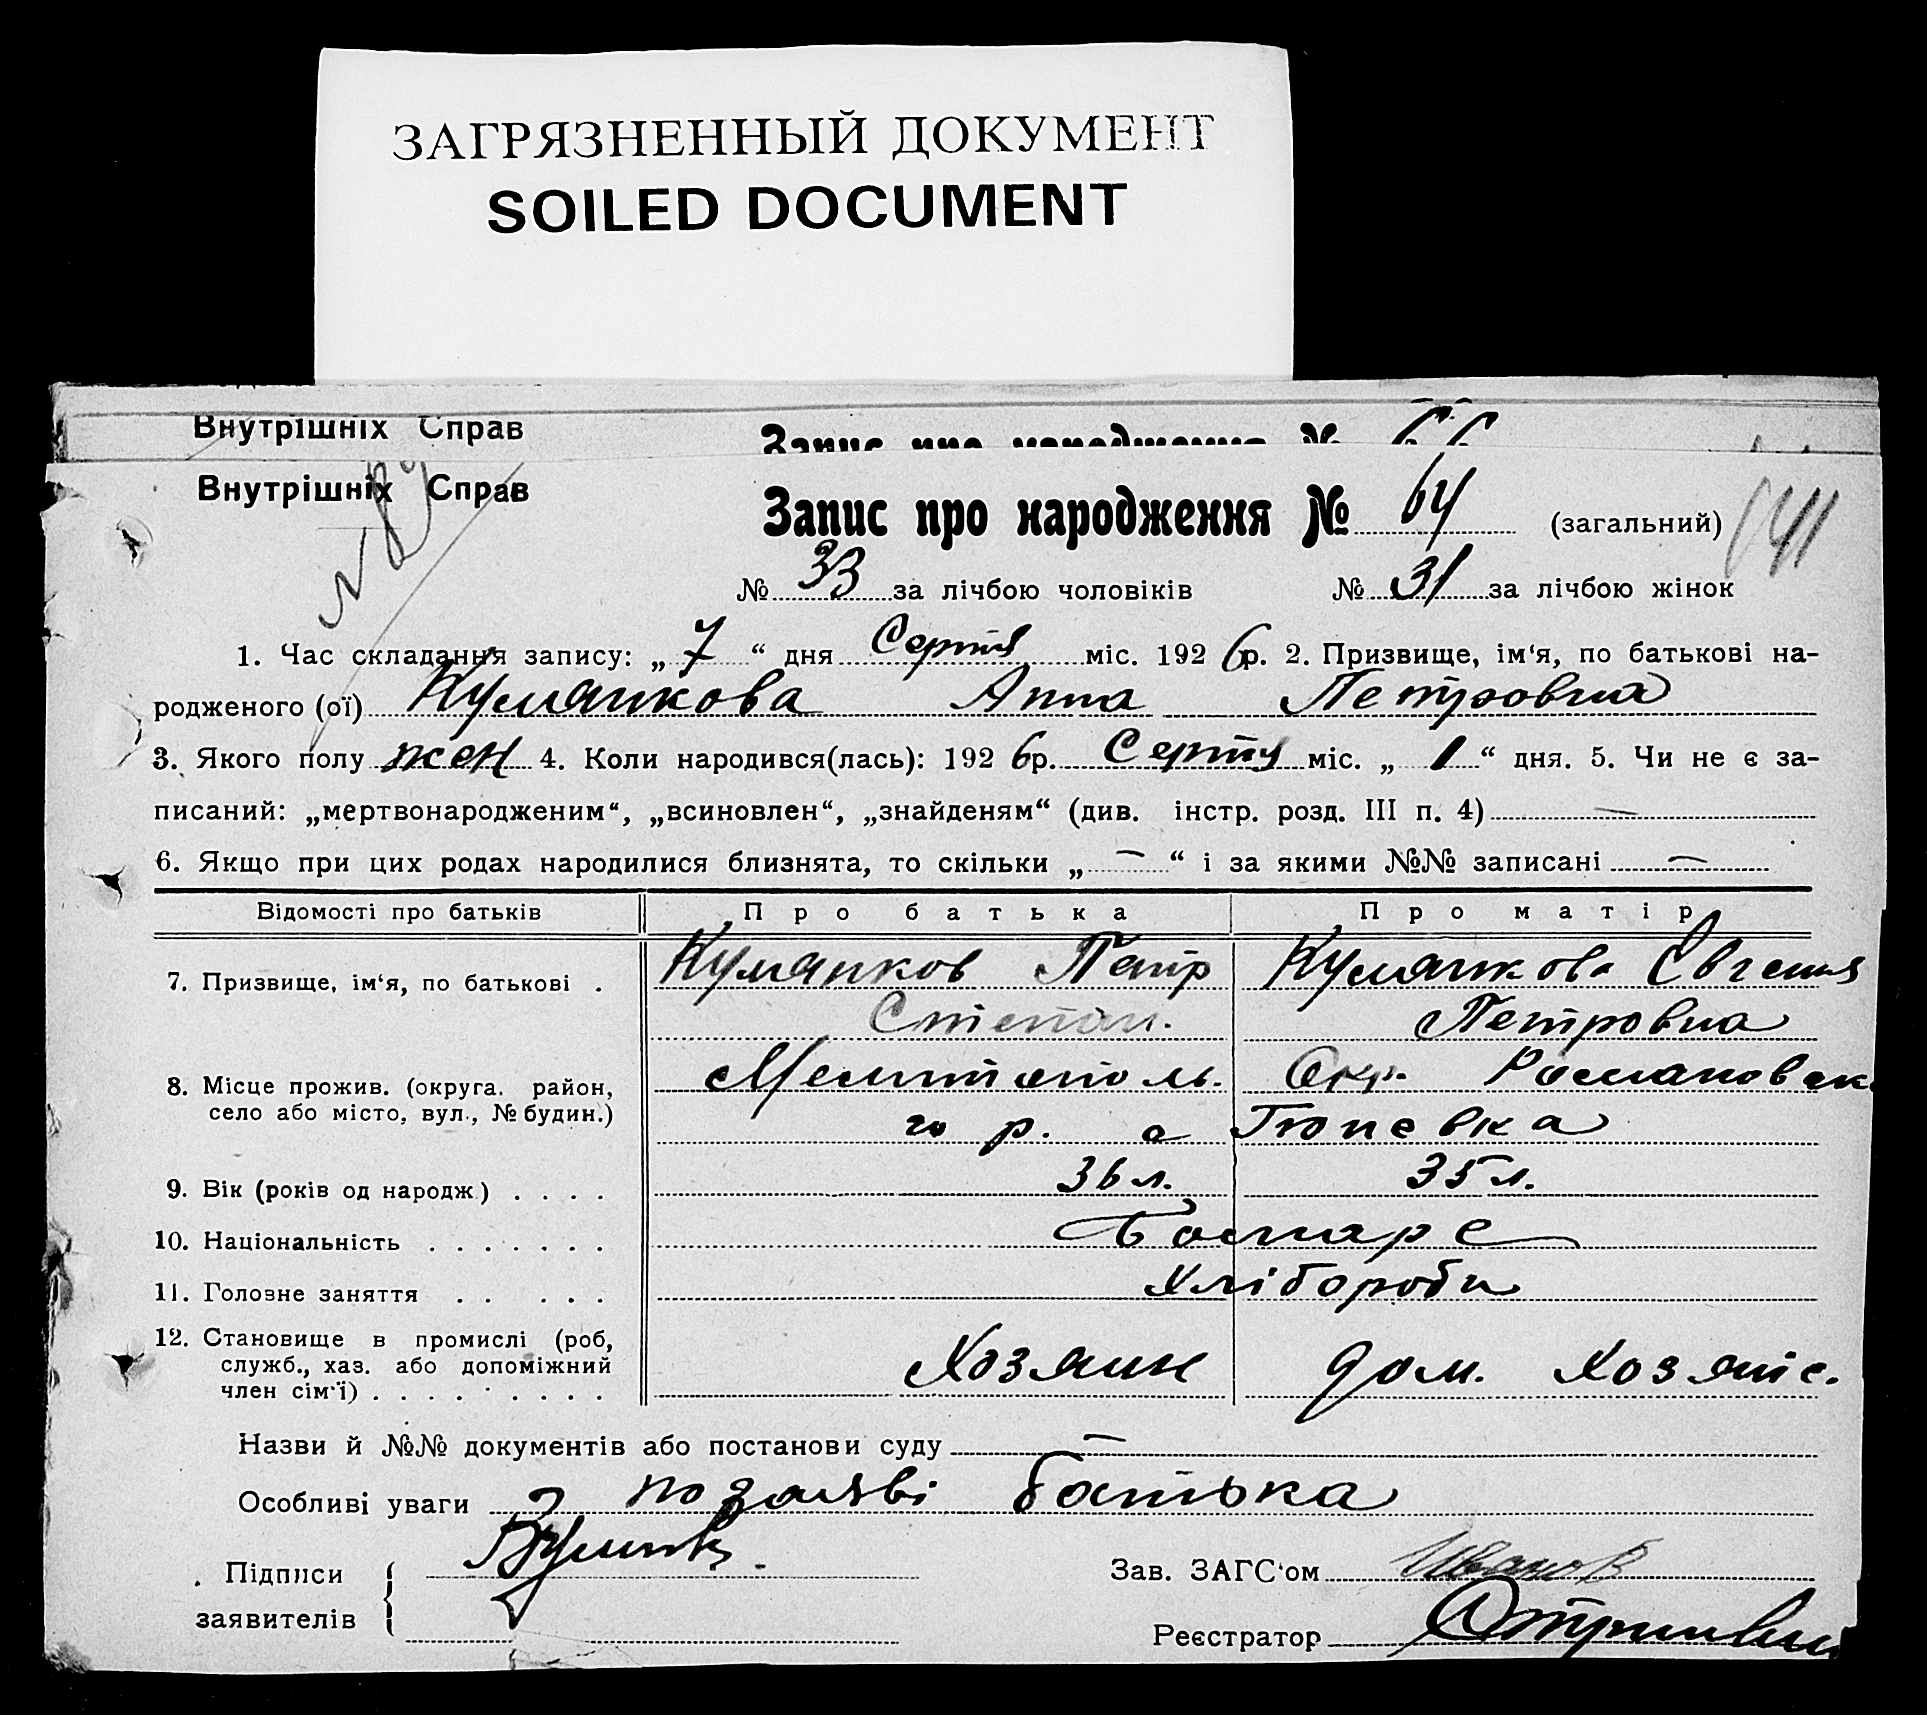 ЗАГРЯЗНЕННЫЙ ДОКУМЕНТ
SOILED DOCUMENT
Внутрішніх Справ
Запис про народження № 66
Внутрішніх Справ
Запис про народження № 64 (загальний)
№ 33 за лічбою чоловіків № 31 за лічбою жінок
1. Час складання запису: „ 7 “ дня Серпня міс. 192 6 р. 2. Призвище, ім‘я, по батькові на-
родженого (ої) Куманкова Анна Петровна
3. Якого полу жен 4. Коли народився(лась): 192 6 р. Серпня міс. „ 1 “ дня. 5. Чи не є за-
писаний: „мертвонародженим“, „всиновлен“, „знайденям“ (див. інстр. розд. III п. 4) —
6. Якщо при цих родах народилися близнята, то скільки „ — “ і за якими №№ записані —
Відомості про батьків Про батька Про матір
7. Призвище, ім‘я, по батькові . Куманков Петр Куманкова Евгения
Степан. Петровна
8. Місце прожив. (округа, район, Мелитополь. Окр. Романовск
село або місто, вул., № будин.) го р. с Гюневка
9. Вік (років од народж.) . . . . 36 л. 35 л.
10. Національність . . . . . . . Болгаре
11. Головне заняття . . . . . Хлібороби
12. Становище в промислі (роб,
служб., хаз. або допоміжний Хозяин дом. хозяйс.
член сім‘ї) . . . . . . . . .
Назви й №№ документів або постанови суду —
Особливі уваги по заяві батька
Підписи Зав. ЗАГС‘ом Иванов
заявителів
Реєстратор